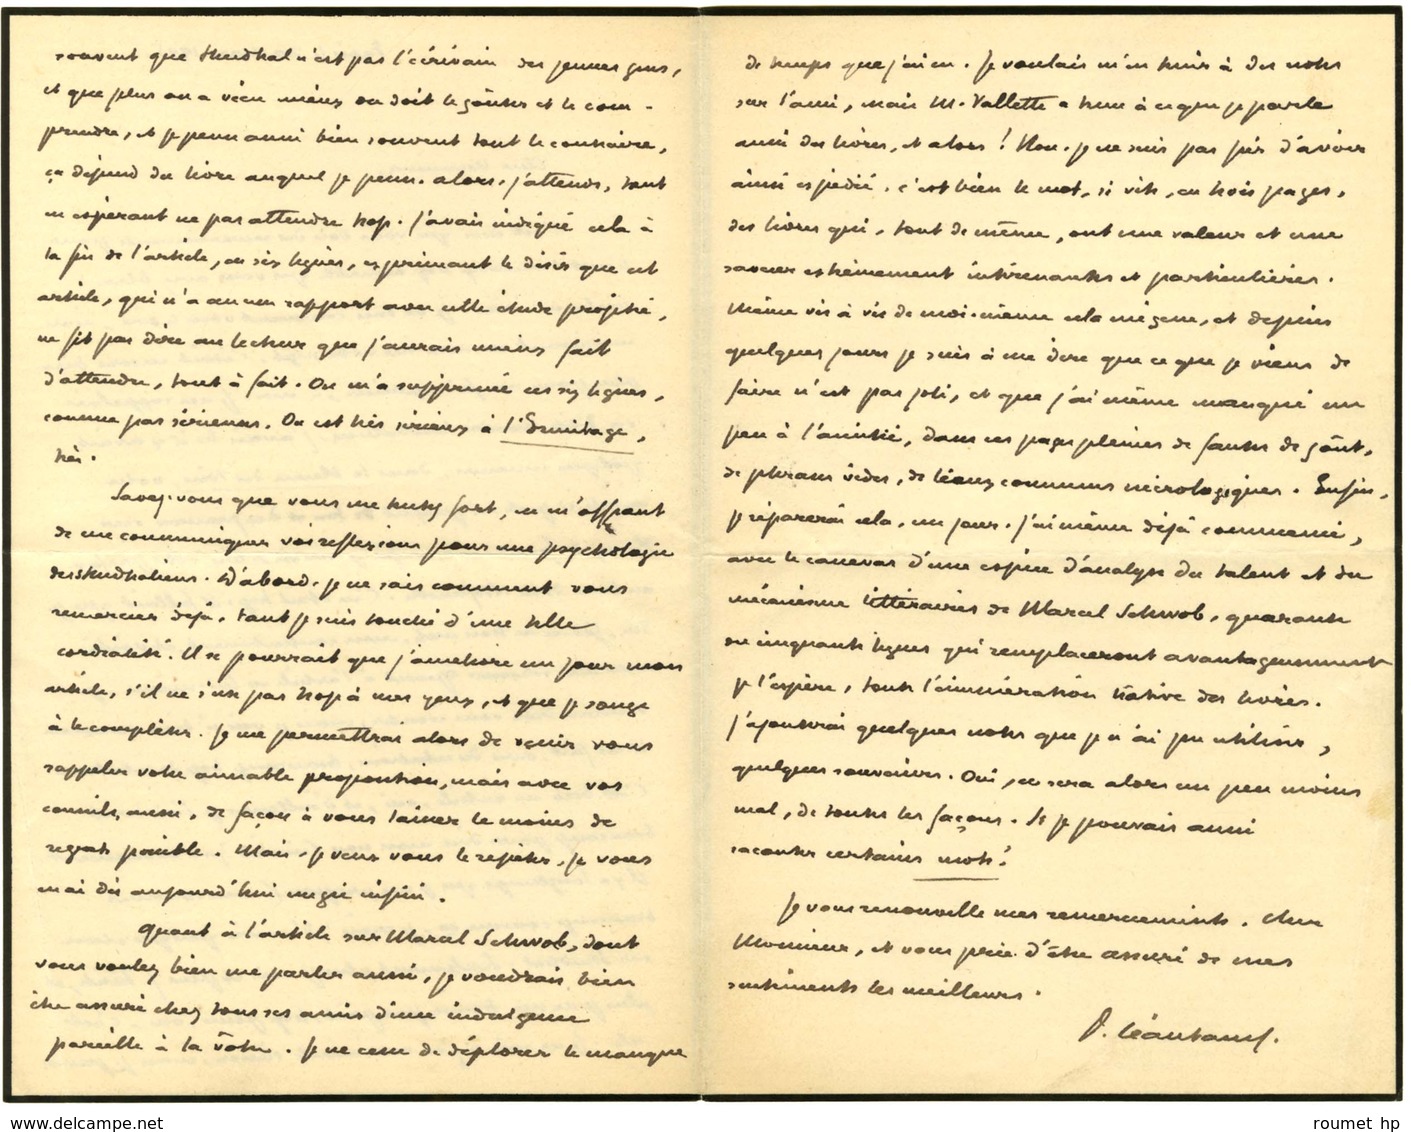 souvent que Stendhal n'est pas l'écrivain des jeunes gens,
et que plus on a vécu mieux on doit le goûter et le com-
prendre, et je pense aussi bien souvent tout le contraire,
ça dépend du livre auquel je pense. Alors, j'attends, tout
en espérant ne pas attendre trop. J'avais indiqué cela à
la fin de l'article, en six lignes, exprimant le désir que cet
article, qui n'a aucun rapport avec cette étude projetée,
ne fit pas dire au lecteur que j'aurais mieux fait
d'attendre, tout à fait. On m'a supprimé ces six lignes,
comme pas sérieuses. On est très sérieux à l'Ermitage,
très.
Savez-vous que vous me tentez fort, en m'offrant
de me communiquer vos réflexions pour une psychologie
des stendhaliens. D'abord, je ne sais comment vous
remercier déjà, tant je suis touché d'une telle
cordialité. Il se pourrait que j'améliore un jour mon
article, s'il ne s'use pas trop à mes yeux, et que je songe
à le compléter. Je me permettrai alors de venir vous
rappeler votre aimable proposition, mais avec vos
conseils, aussi, de façon à vous laisser le moins de
regrets possible. Mais, je veux vous le répéter, je vous
en ai dès aujourd'hui un gré infini.
Quant à l'article sur Marcel Schwob, dont
vous voulez bien me parler aussi, je voudrais bien
être assuré chez tous ses amis d'une indulgence
pareille à la vôtre. Je ne cesse de déplorer le manque
de temps que j'ai eu. Je voulais m'en tenir à des notes
sur l'ami, mais M. Vallette a tenu à ce que je parle
aussi des livres, et alors! Non, je ne suis pas fier d'avoir
ainsi expédié, c'est bien le mot, si vite, en trois pages,
des livres qui, tout de même, ont une valeur et une
saveur extrêmement intéressantes et particulières.
Même vis à vis de moi-même cela me gêne, et depuis
quelques jours je suis à me dire que ce que je viens de
faire n'est pas joli, et que j'ai même manqué un
peu à l'amitié, dans ces pages pleines de fautes de goût,
de phrases vides, de lieux communs nécrologiques. Enfin,
je réparerai cela, un jour. J'ai même déjà commencé,
avec le canevas d'une espèce d'analyse du talent et du
mécanisme littéraires de Marcel Schwob, quarante
ou cinquante lignes qui remplaceront avantageusement
je l'espère, toute l'énumération hâtive des livres.
J'ajouterai quelques notes que je n'ai pu utiliser,
quelques souvenirs. Oui, ce sera alors un peu moins
mal, de toutes les façons. Si je pouvais aussi
raconter certains mots!
Je vous renouvelle mes remerciements, cher
Monsieur, et vous prie d'être assuré de mes
sentiments les meilleurs.
P. Léautaud.
www.delcampe.net
roumet hp